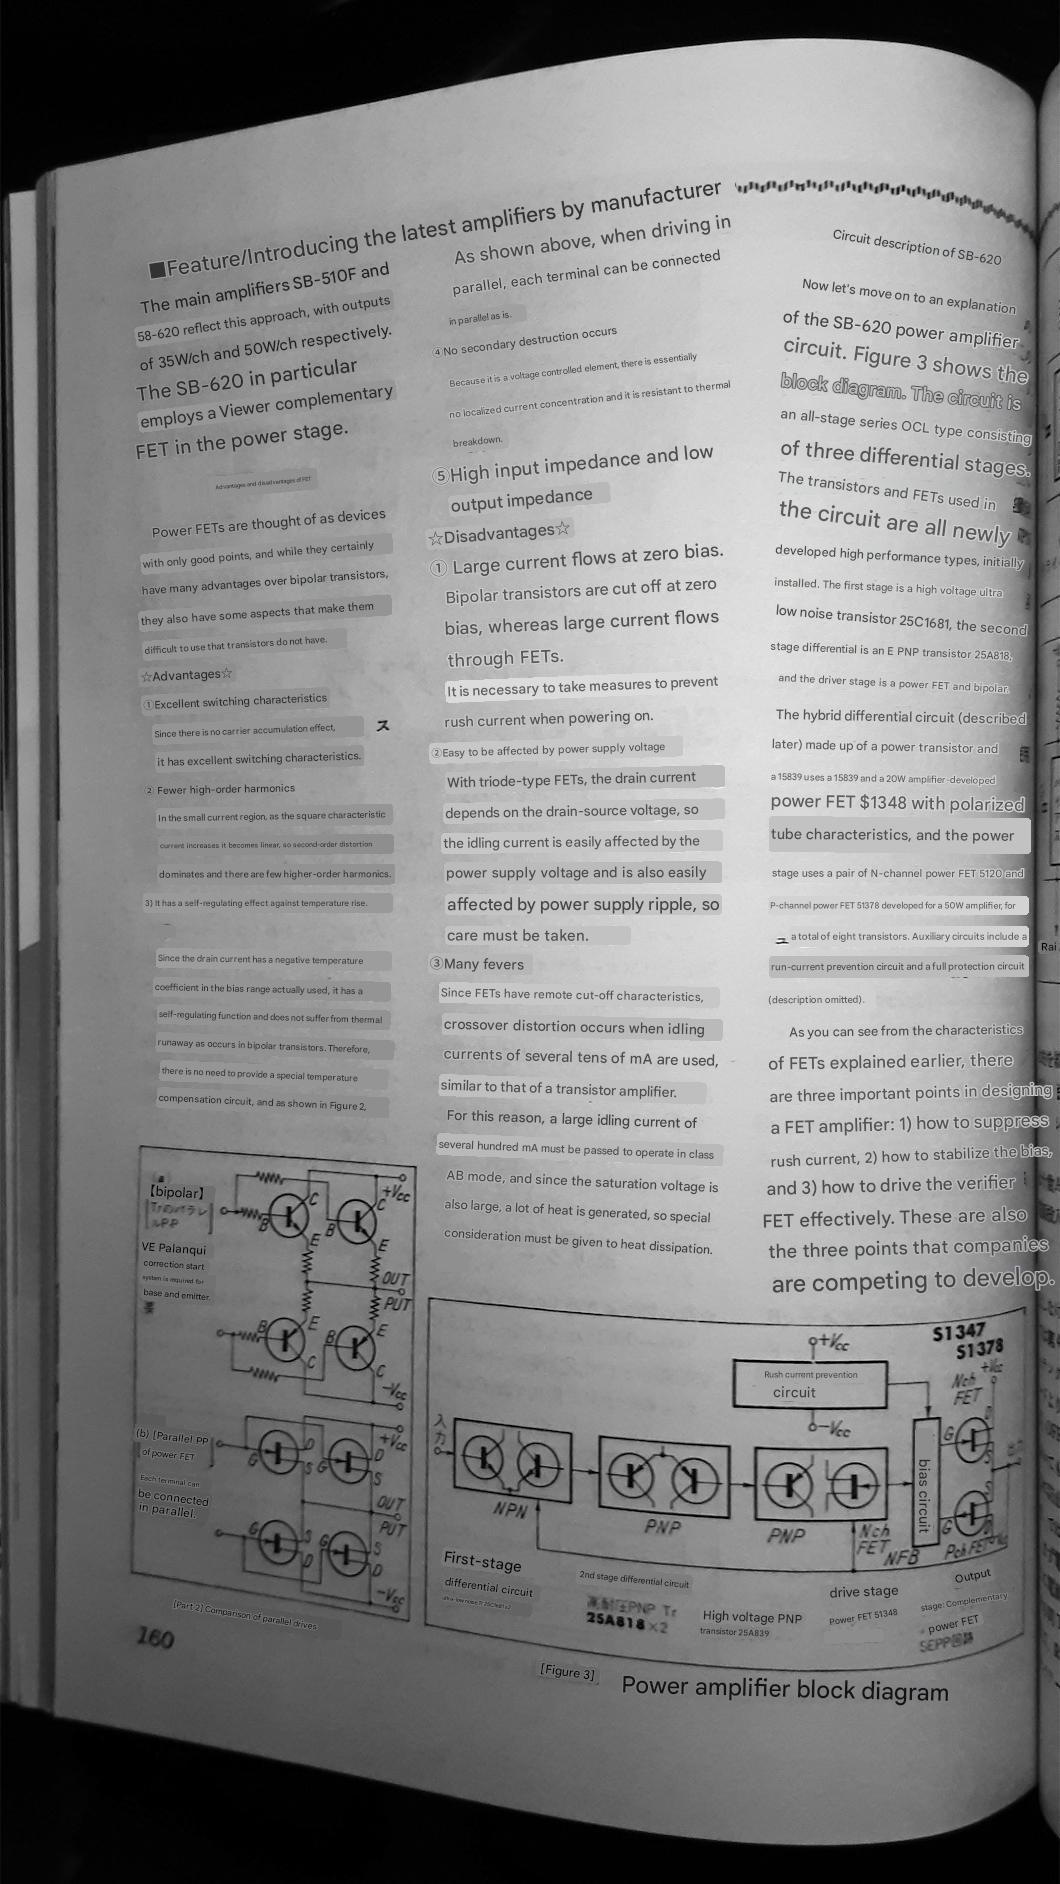 ■Feature/Introducing the latest amplifiers by manufacturer
The main amplifiers SB-510F and
58-620 reflect this approach, with outputs
of 35W/ch and 50W/ch respectively.
The SB-620 in particular
employs a Viewer complementary
FET in the power stage.
Advantages and disadvantages of FET
Power FETs are thought of as devices
with only good points, and while they certainly
have many advantages over bipolar transistors,
they also have some aspects that make them
difficult to use that transistors do not have.
☆Advantages☆
①Excellent switching characteristics
Since there is no carrier accumulation effect,
ス
it has excellent switching characteristics.
② Fewer high-order harmonics
In the small current region, as the square characteristic
current increases it becomes linear, so second-order distortion
dominates and there are few higher-order harmonics.
3) It has a self-regulating effect against temperature rise.
Since the drain current has a negative temperature
coefficient in the bias range actually used, it has a
self-regulating function and does not suffer from thermal
runaway as occurs in bipolar transistors. Therefore,
there is no need to provide a special temperature
compensation circuit, and as shown in Figure 2,
As shown above, when driving in
parallel, each terminal can be connected
in parallel as is.
④ No secondary destruction occurs
Because it is a voltage controlled element, there is essentially
no localized current concentration and it is resistant to thermal
breakdown.
⑤High input impedance and low
output impedance
☆Disadvantages☆
① Large current flows at zero bias.
Bipolar transistors are cut off at zero
bias, whereas large current flows
through FETs.
It is necessary to take measures to prevent
rush current when powering on.
②Easy to be affected by power supply voltage
With triode-type FETs, the drain current
depends on the drain-source voltage, so
the idling current is easily affected by the
power supply voltage and is also easily
affected by power supply ripple, so
care must be taken.
③Many fevers
Since FETs have remote cut-off characteristics,
crossover distortion occurs when idling
currents of several tens of mA are used,
similar to that of a transistor amplifier.
For this reason, a large idling current of
several hundred mA must be passed to operate in class
AB mode, and since the saturation voltage is
also large, a lot of heat is generated, so special
consideration must be given to heat dissipation.
Circuit description of SB-620
Now let's move on to an explanation
of the SB-620 power amplifier
circuit. Figure 3 shows the
block diagram. The circuit is
an all-stage series OCL type consisting
of three differential stages.
The transistors and FETs used in
the circuit are all newly
developed high performance types, initially
installed. The first stage is a high voltage ultra
low noise transistor 25C1681, the second
stage differential is an E PNP transistor 25A818,
and the driver stage is a power FET and bipolar.
The hybrid differential circuit (described
later) made up of a power transistor and
a 15839 uses a 15839 and a 20W amplifier-developed
power FET $1348 with polarized
tube characteristics, and the power
stage uses a pair of N-channel power FET 5120 and
P-channel power FET 51378 developed for a 50W amplifier, for
ニ a total of eight transistors. Auxiliary circuits include a
run-current prevention circuit and a full protection circuit
(description omitted).
As you can see from the characteristics
of FETs explained earlier, there
are three important points in designing
a FET amplifier: 1) how to suppress
rush current, 2) how to stabilize the bias,
and 3) how to drive the verifier
FET effectively. These are also
the three points that companies
are competing to develop.
Rai
【bipolar】
VE Palanqui
correction start
system is required for
base and emitter.
要
B C +Vcc
B C
E E
OUT
PUT
B E B E
C C
-Vcc
(b) [Parallel PP
of power FET
Each terminal can
be connected
in parallel.
G D +Vcc
S G D
S
OUT
PUT
G S G S
D D
-Vcc
[Part 2] Comparison of parallel drives
入力
NPN
PNP
PNP
Nch
FET
NFB
+Vcc
Rush current prevention
circuit
-Vcc
bias circuit
S1347
S1378
+Vcc
Nch
FET
G D
S
G S
D
Pch FET
First-stage
differential circuit
2nd stage differential circuit
高耐圧PNP Tr
25A818×2
High voltage PNP
transistor 25A839
drive stage
Power FET 51348
Output
stage: Complementary
power FET
SEPP回路
160
[Figure 3]
Power amplifier block diagram